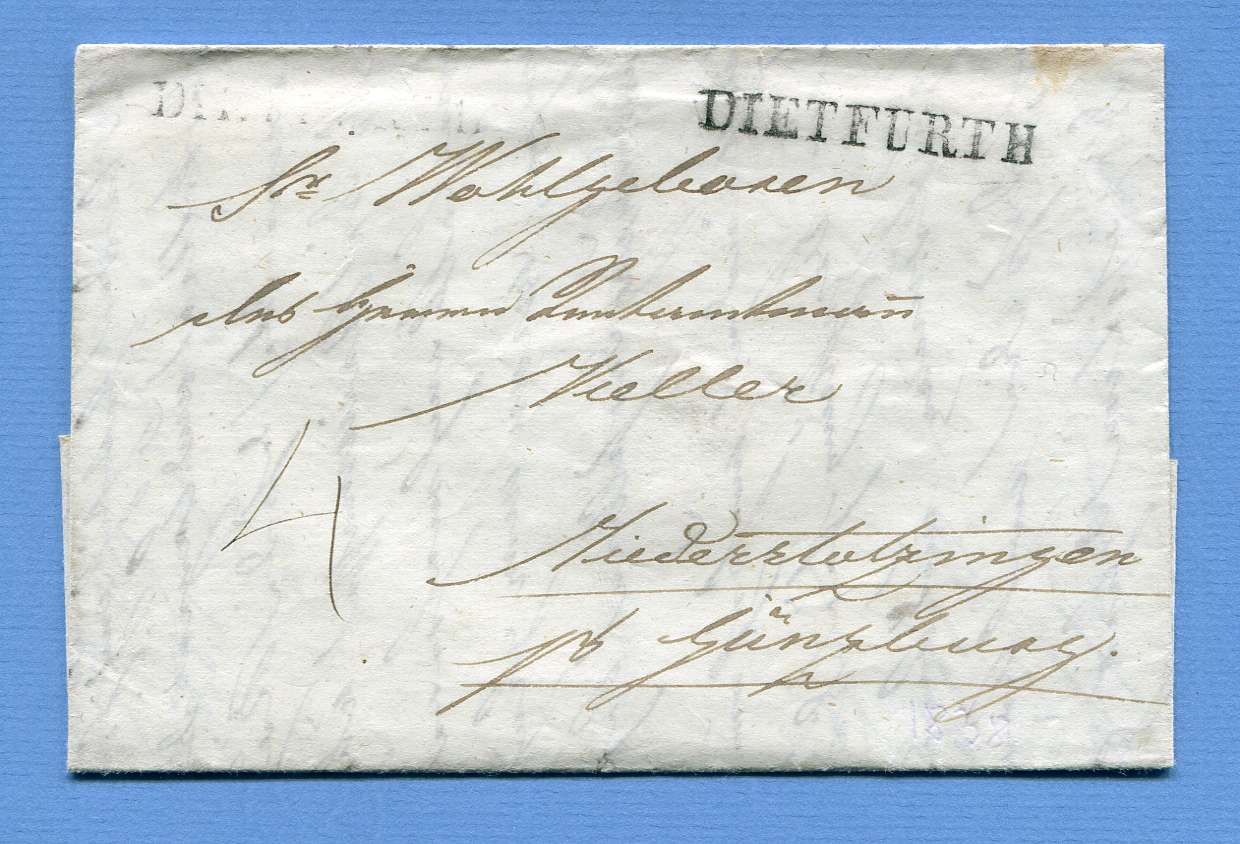 DIETFURTH
Sr Wohlgeboren
des Herrn Rentamtmann
Kieller
4
Niederstotzingen
pr Günzburg.
1838